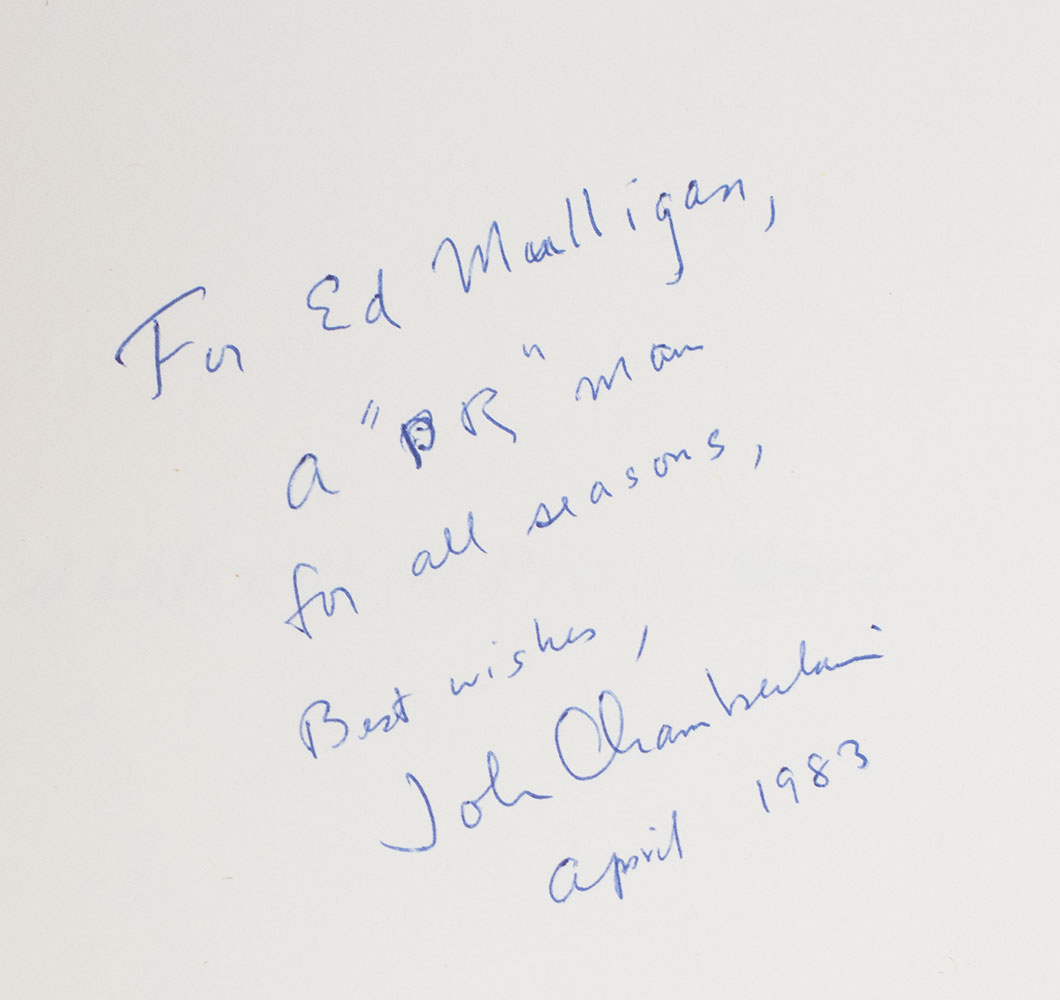 For Ed Mulligan,
a "PR" man
for all seasons,
Best wishes,
John Chamberlain
April 1983